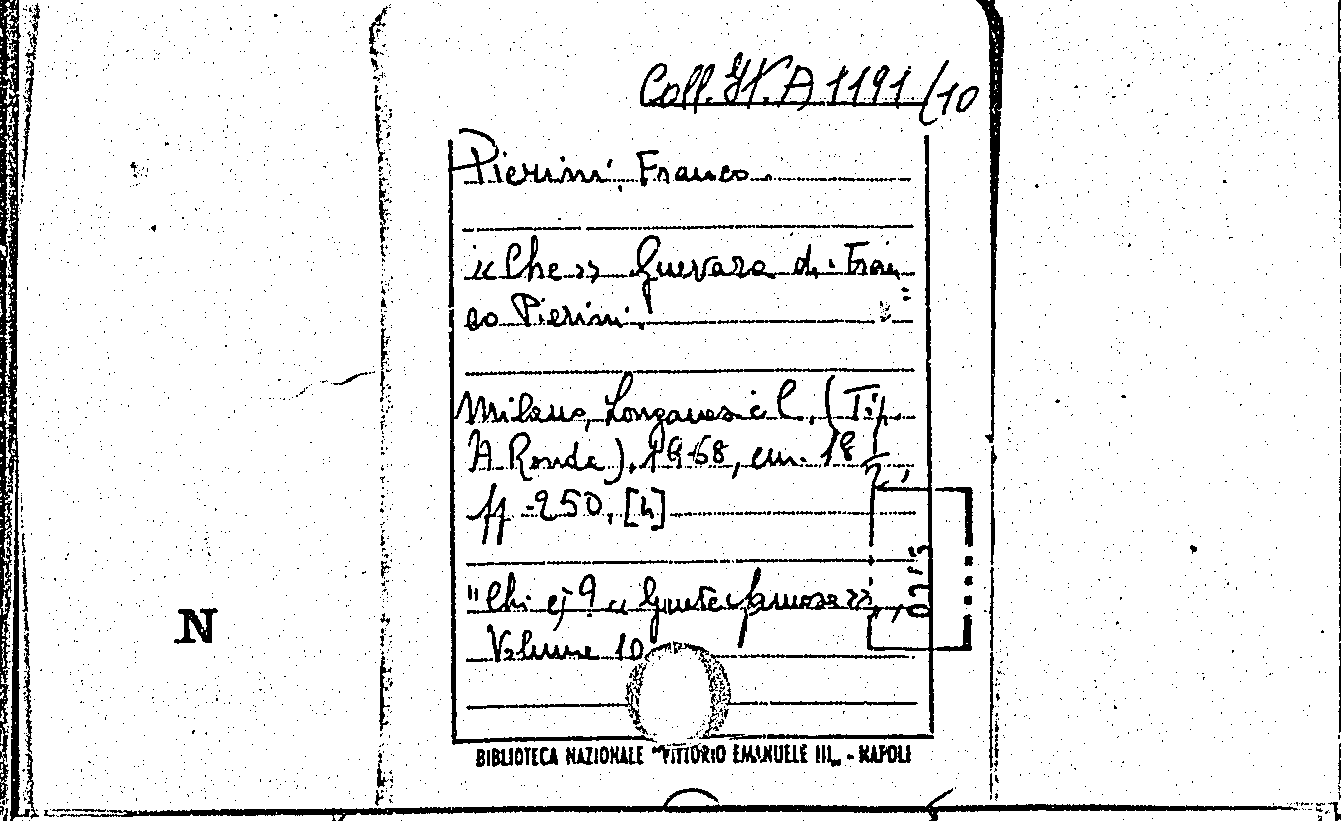 Coll. It. A 1191/10
Pierini, Franco.
«Che» Guevara di Fran
co Pierini.
Milano, Longanesi e C. (Tip.
A Ronda), 1968, cm. 18 1/2,
pp 250, [4]
"Chi è? «Gente famosa»,
Volume 10
N
BIBLIOTECA NAZIONALE "VITTORIO EMANUELE III„ - NAPOLI